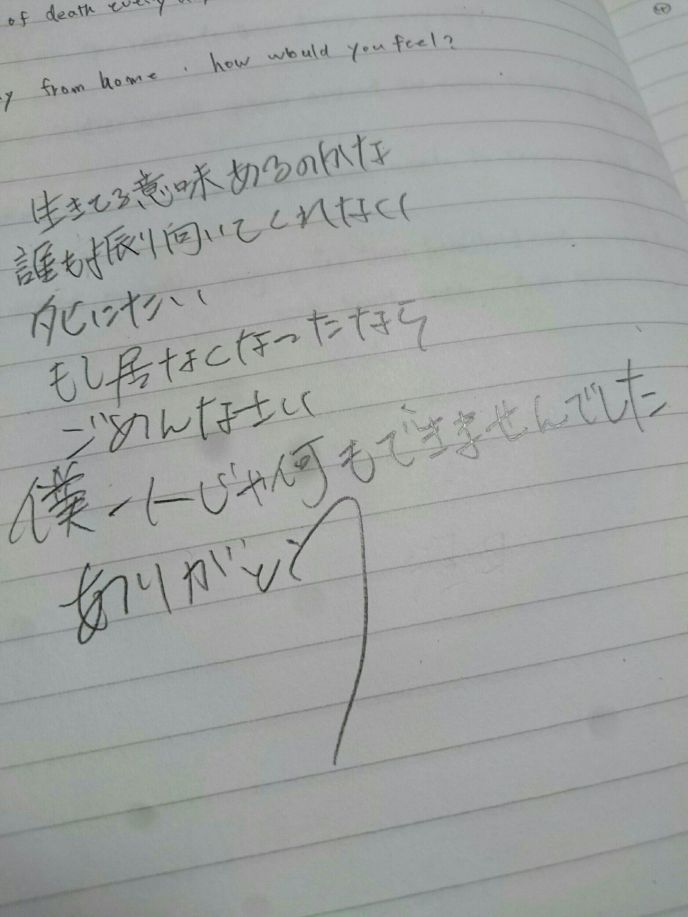 of death every
from home, how would you feel?
生きてる意味あるのかな
誰も振り向いてくれなくて
死にたい
もし居なくなったなら
ごめんなさい
僕一人じゃ何もできませんでした
ありがとう